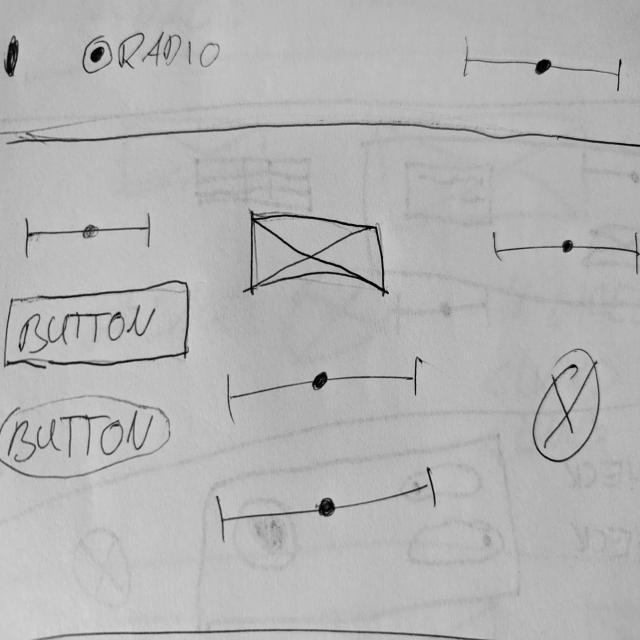 RADIO
BUTTON
BUTTON